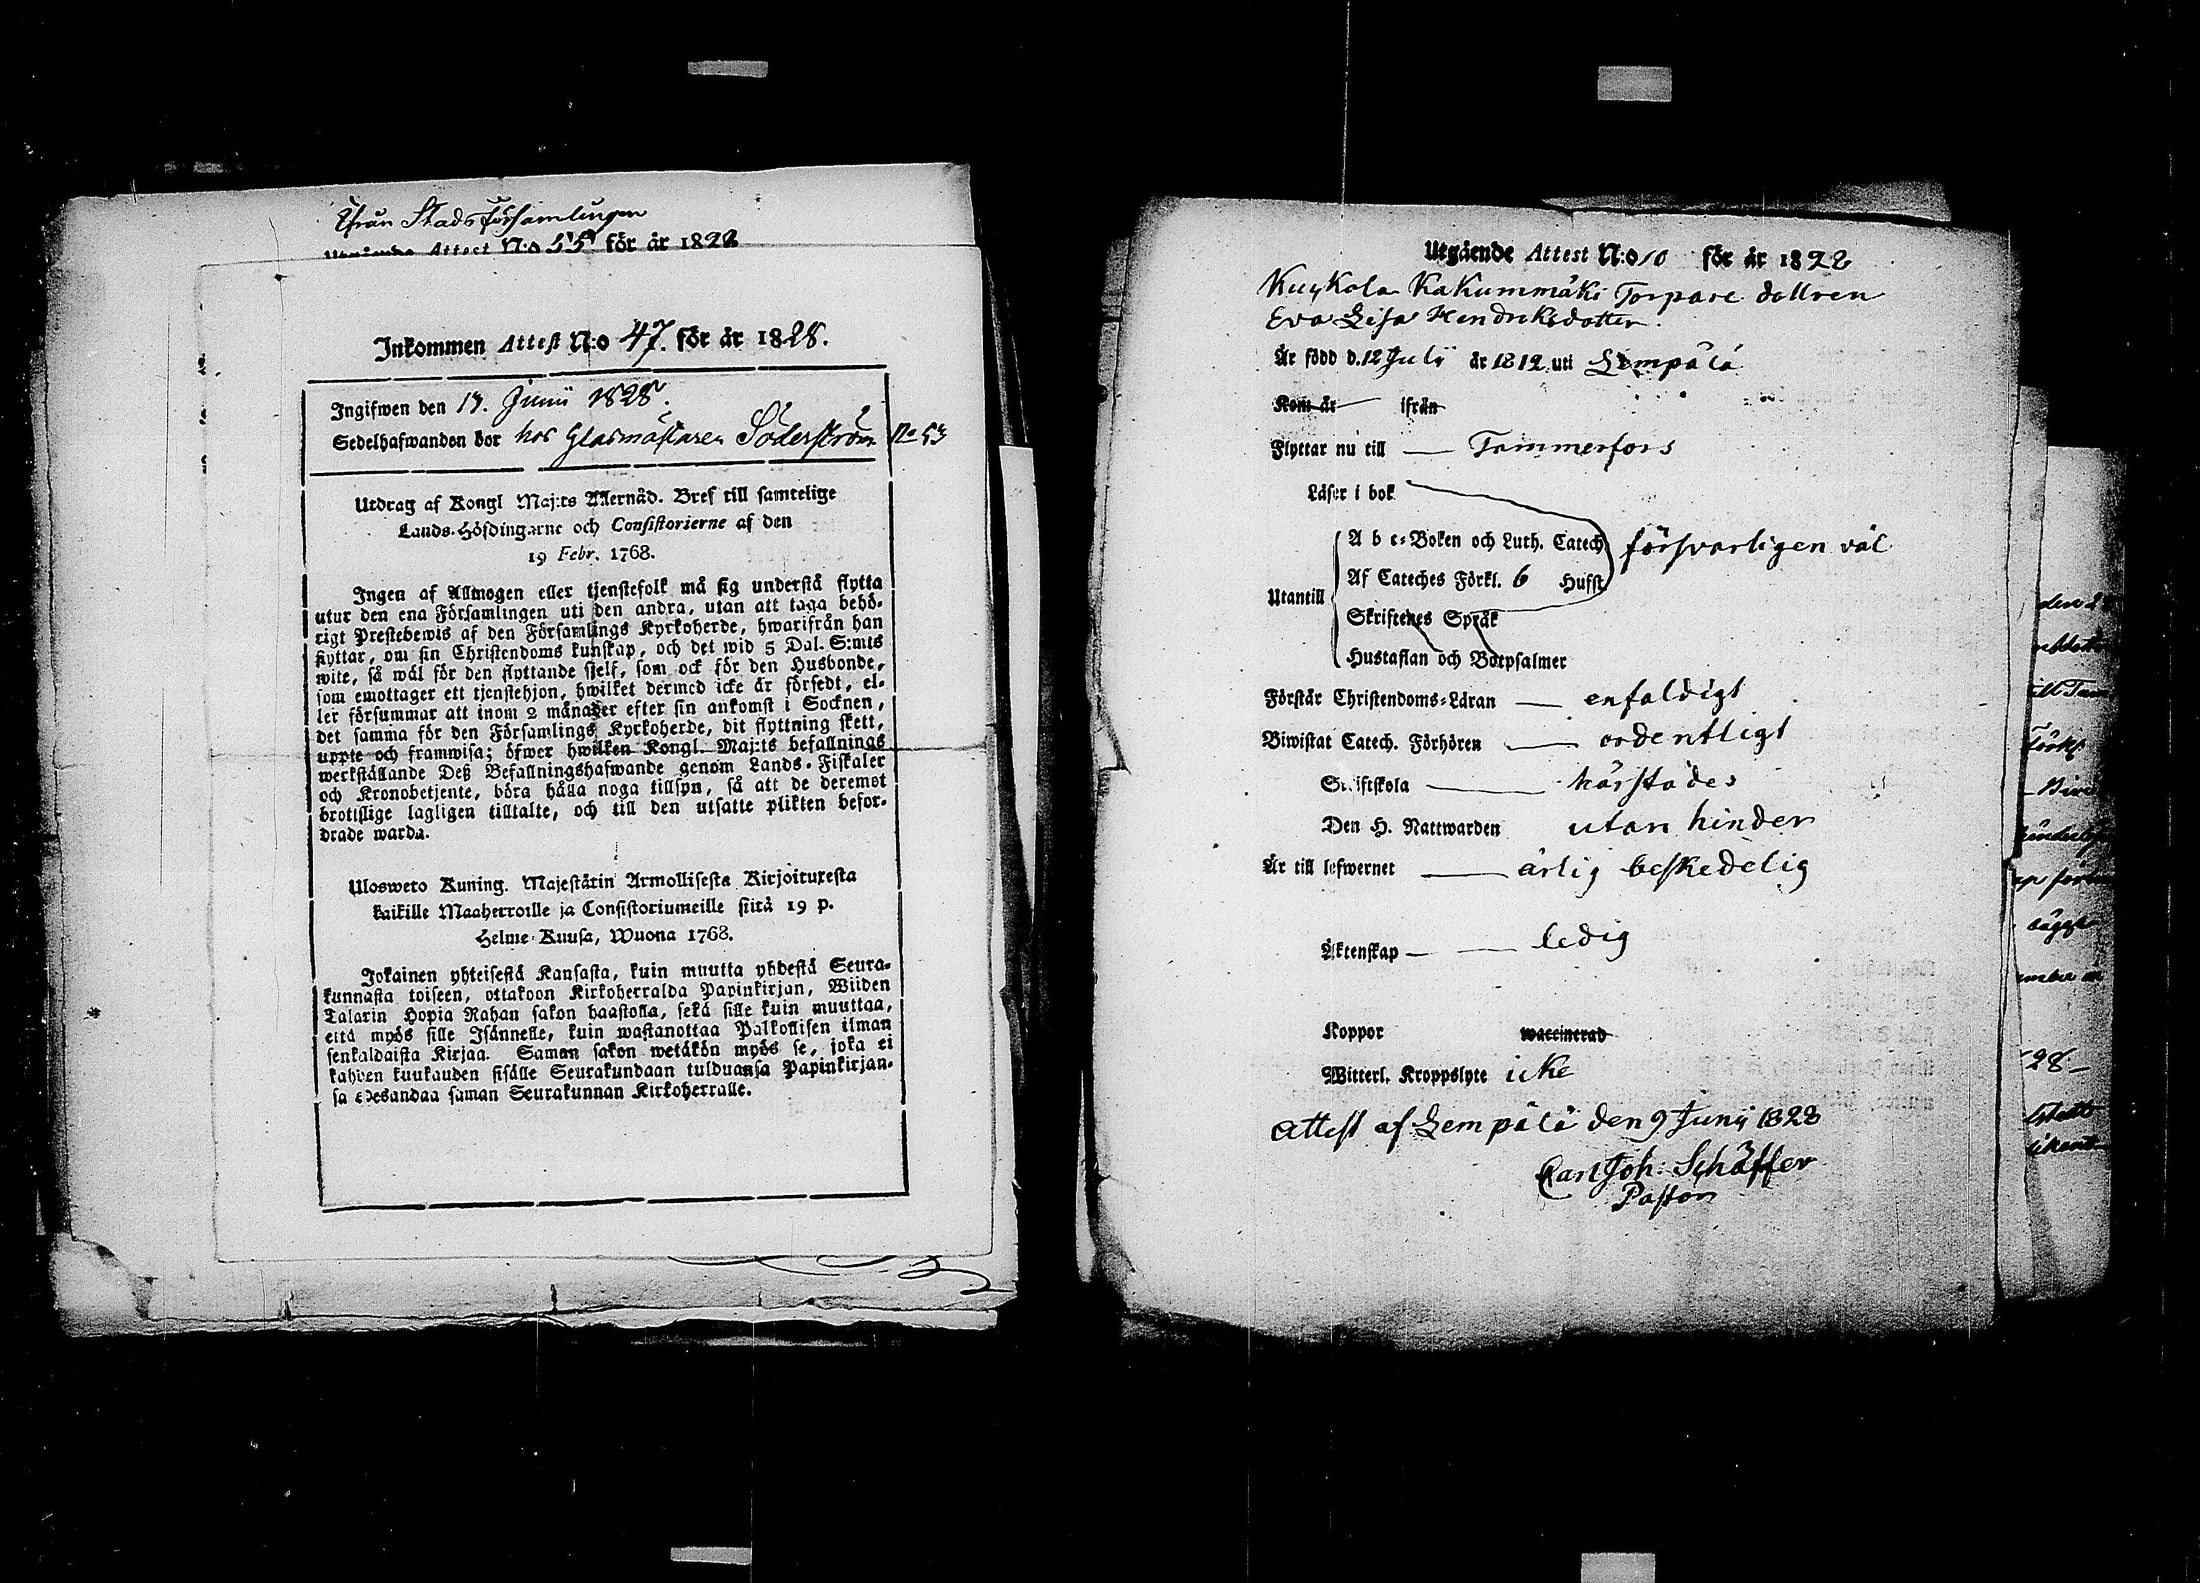 ifrån Stads församlingen
Utgående Attest N:o 55 för år 1828
Inkommen Attest N:o 47. för år 1828.
Ingifwen den 13. Junii 1828.
Sedelhafwanden bor hos Glasmästaren Söderström No 53
Utdrag af Kongl Maj:ts Allernåd. Bref till samtelige
Lands-Höfdingarne och Consistorierne af den
19 Febr. 1768.
Ingen af Allmogen eller tjenstefolk må sig understå flytta
utur den ena Församlingen uti den andra, utan att taga behö-
rigt Prestebewis af den Församlings Kyrkoherde, hwarifrån han
flyttar, om sin Christendoms kunskap, och det wid 5 Dal. S:mts
wite, så wäl för den flyttande sjelf, som ock för den Husbonde,
som emottager ett tjenstehjon, hwilket dermed icke är försedt, el-
ler försummar att inom 2 månader efter sin ankomst i Socknen,
det samma för den Församlings Kyrkoherde, dit flyttning skett,
uppte och framwisa; öfwer hwilken Kongl. Maj:ts befallnings
werkställande Deß Befallningshafwande genom Lands-Fiskaler
och Kronobetjente, böra hålla noga tillsyn, så att de deremot
brottslige lagligen tilltalte, och till den utsatte plikten befor-
drade warda.
Ulosweto Kuning. Majestätin Armollisesta Kirjoituxesta
kaikille Maaherroille ja Consistoriumeille siitä 19 p.
Helme-Kuusa, Wuona 1768.
Jokainen yhteisestä Kansasta, kuin muutta yhdestä Seura-
kunnasta toiseen, ottakoon Kirkoherralda Papinkirjan, Wiiden
Talarin Hopia Rahan sakon haastolla, sekä sille kuin muuttaa,
että myös sille Isännelle, kuin wastanottaa Palkollisen ilman
senkaldaista Kirjaa. Saman sakon wetäkön myös se, joka ei
kahden kuukauden sisälle Seurakundaan tulduansa Papinkirjan-
sa edesandaa saman Seurakunnan Kirkoherralle.
Utgående Attest N:o 10 för år 1828
Kuykola Kakummäki Torpare dottren
Eva Lisa Hendriksdotter.
Är född d. 12 Julii år 1812 uti Lempälä
Kom år ifrån
Flyttar nu till Tammerfors
Läser i bok
Utantill
A b c-Boken och Luth. Catech. försvarligen väl
Af Cateches Förkl. 6 Hufst.
Skriftenes Språk
Hustaflan och Botpsalmer
Förstår Christendoms-Läran enfaldigt
Biwistat Catech. Förhören ordentligt
Skriftskola härstädes
Den H. Nattwarden utan hinder
Är till lefwernet ärlig beskedelig
Äktenskap ledig
Koppor waccinerad
Witterl. Kroppslyte icke
Attest af Lempälä den 9 Junij 1828
Carl Joh: Schäffer
Pastor
28